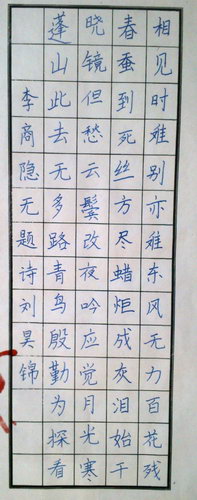 相见时难别亦难东风无力百花残
春蚕到死丝方尽蜡炬成灰泪始干
晓镜但愁云鬓改夜吟应觉月光寒
蓬山此去无多路青鸟殷勤为探看
李商隐无题诗刘昊锦